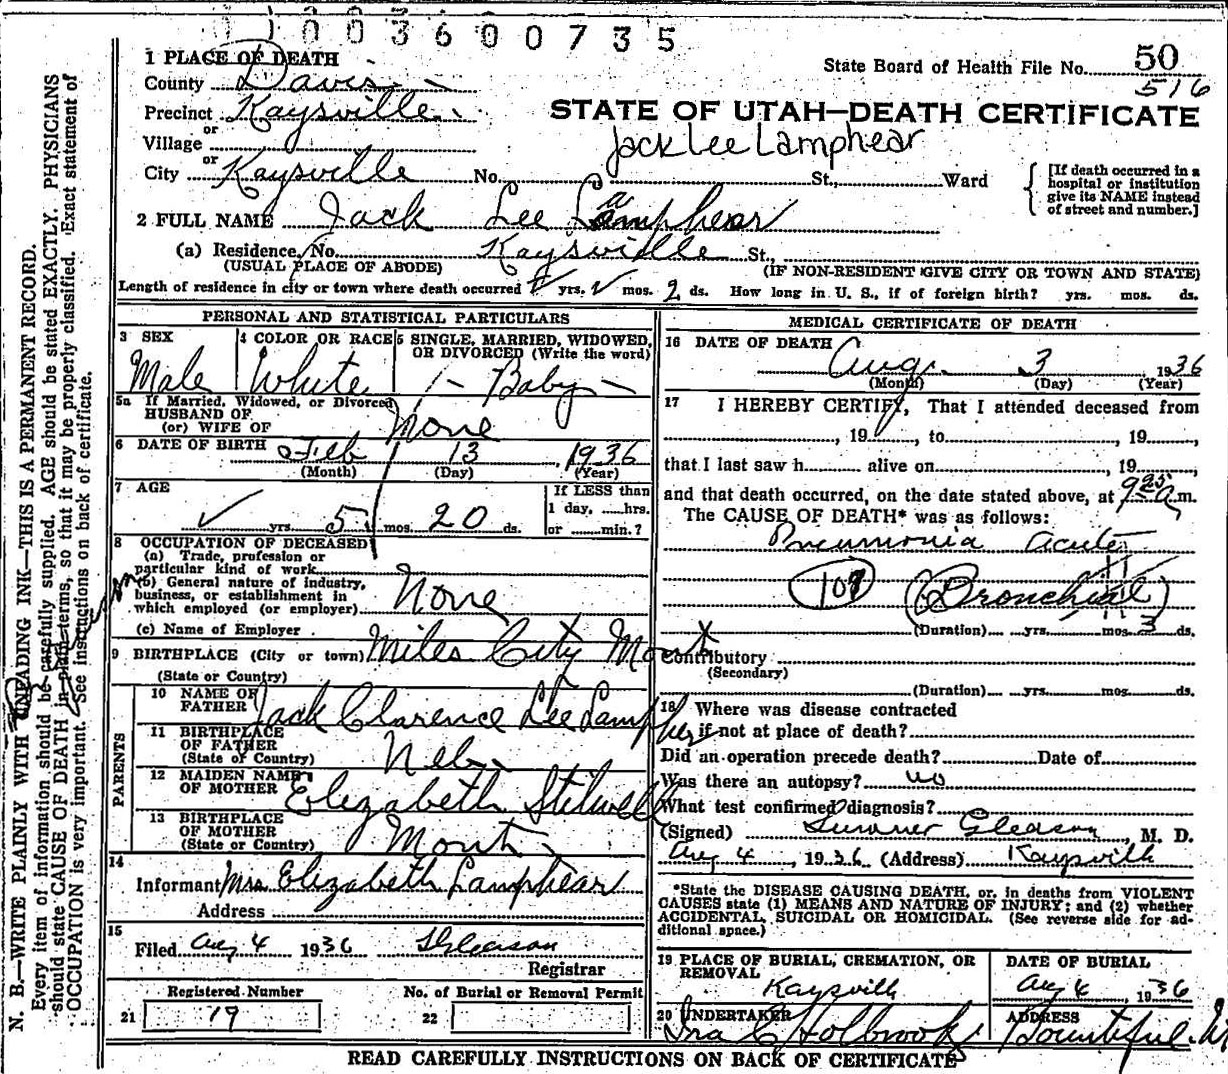 1 0 0 3 6 0 0 7 3 5
1 PLACE OF DEATH
County Davis
State Board of Health File No. 50
516
Precinct Kaysville
STATE OF UTAH—DEATH CERTIFICATE
Village or
Jack Lee Lamphear
City or Kaysville No. St., Ward
[If death occurred in a hospital or institution give its NAME instead of street and number.]
2 FULL NAME Jack Lee Lamphear
(a) Residence, No. Kaysville St.,
(USUAL PLACE OF ABODE) (IF NON-RESIDENT GIVE CITY OR TOWN AND STATE)
Length of residence in city or town where death occurred yrs. mos. 2 ds. How long in U. S., if of foreign birth? yrs. mos. ds.
PERSONAL AND STATISTICAL PARTICULARS
3 SEX
Male
4 COLOR OR RACE
White
5 SINGLE, MARRIED, WIDOWED, OR DIVORCED (Write the word)
- Baby -
5a If Married, Widowed, or Divorced
HUSBAND OF
(or) WIFE OF
None
6 DATE OF BIRTH Feb 13, 1936
(Month) (Day) (Year)
7 AGE
✓ yrs. 5 mos. 20 ds.
If LESS than
1 day, ......hrs.
or ......min.?
8 OCCUPATION OF DECEASED
(a) Trade, profession or
particular kind of work
(b) General nature of industry,
business, or establishment in
which employed (or employer) None
(c) Name of Employer
9 BIRTHPLACE (City or town) Miles City Mont
(State or Country)
PARENTS
10 NAME OF FATHER Jack Clarence Lee Lamphear
11 BIRTHPLACE OF FATHER
(State or Country) Neb.
12 MAIDEN NAME OF MOTHER Elizabeth Stilwell
13 BIRTHPLACE OF MOTHER
(State or Country) Mont
14
Informant Mrs Elizabeth Lamphear
Address
15
Filed Aug 4 1936 S Gleason
Registrar
Registered Number
21 19
No. of Burial or Removal Permit
22
MEDICAL CERTIFICATE OF DEATH
16 DATE OF DEATH
Aug. 3, 1936
(Month) (Day) (Year)
17 I HEREBY CERTIFY, That I attended deceased from
, 19 , to , 19 ,
that I last saw h alive on , 19
and that death occurred, on the date stated above, at 9 25 a m.
The CAUSE OF DEATH* was as follows:
Pneumonia acute
107 (Bronchial)
(Duration) yrs. mos. 3 ds.
Contributory
(Secondary)
(Duration) yrs. mos. ds.
18 Where was disease contracted
if not at place of death?
Did an operation precede death? Date of
Was there an autopsy? no
What test confirmed diagnosis?
(Signed) Sumner Gleason, M. D.
Aug 4, 1936 (Address) Kaysville
*State the DISEASE CAUSING DEATH, or, in deaths from VIOLENT
CAUSES state (1) MEANS AND NATURE OF INJURY; and (2) whether
ACCIDENTAL, SUICIDAL OR HOMICIDAL. (See reverse side for ad-
ditional space.)
19 PLACE OF BURIAL, CREMATION, OR REMOVAL
Kaysville
DATE OF BURIAL
Aug 4, 1936
20 UNDERTAKER
Ira C Holbrook
ADDRESS
Bountiful.
READ CAREFULLY INSTRUCTIONS ON BACK OF CERTIFICATE
N. B.—WRITE PLAINLY WITH UNFADING INK—THIS IS A PERMANENT RECORD.
Every item of information should be carefully supplied. AGE should be stated EXACTLY. PHYSICIANS
should state CAUSE OF DEATH in plain terms, so that it may be properly classified. Exact statement of
OCCUPATION is very important. See instructions on back of certificate.